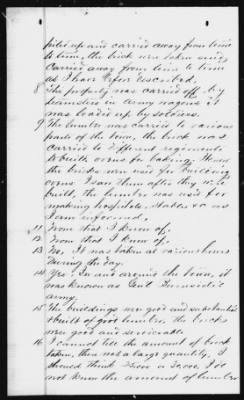 piled up and carried away from time
to time, the brick were taken and
carried away from time to time
as I have before described.
8 The property was carried off by
teamsters in army wagons it
was loaded up by soldiers.
9 The lumber was carried to various
parts of the town, the brick was
carried to different regiments
to built ovens for baking, I know
the bricks were used for building
ovens I saw them after they were
built, the lumber was used for
making hospitals, stables &c as
I am informed,
11 None that I know of.
12 None that I know of.
13 No, it was taken at various hours
during the day.
14 Yes; In and around the town, it
was known as Genl Burnside's
army.
15 The buildings were good and substantial
& built of good lumber, the bricks
were good and serviceable
16 I cannot tell the amount of brick
taken, there was a large quantity, I
should think or I do
not know the amount of lumber